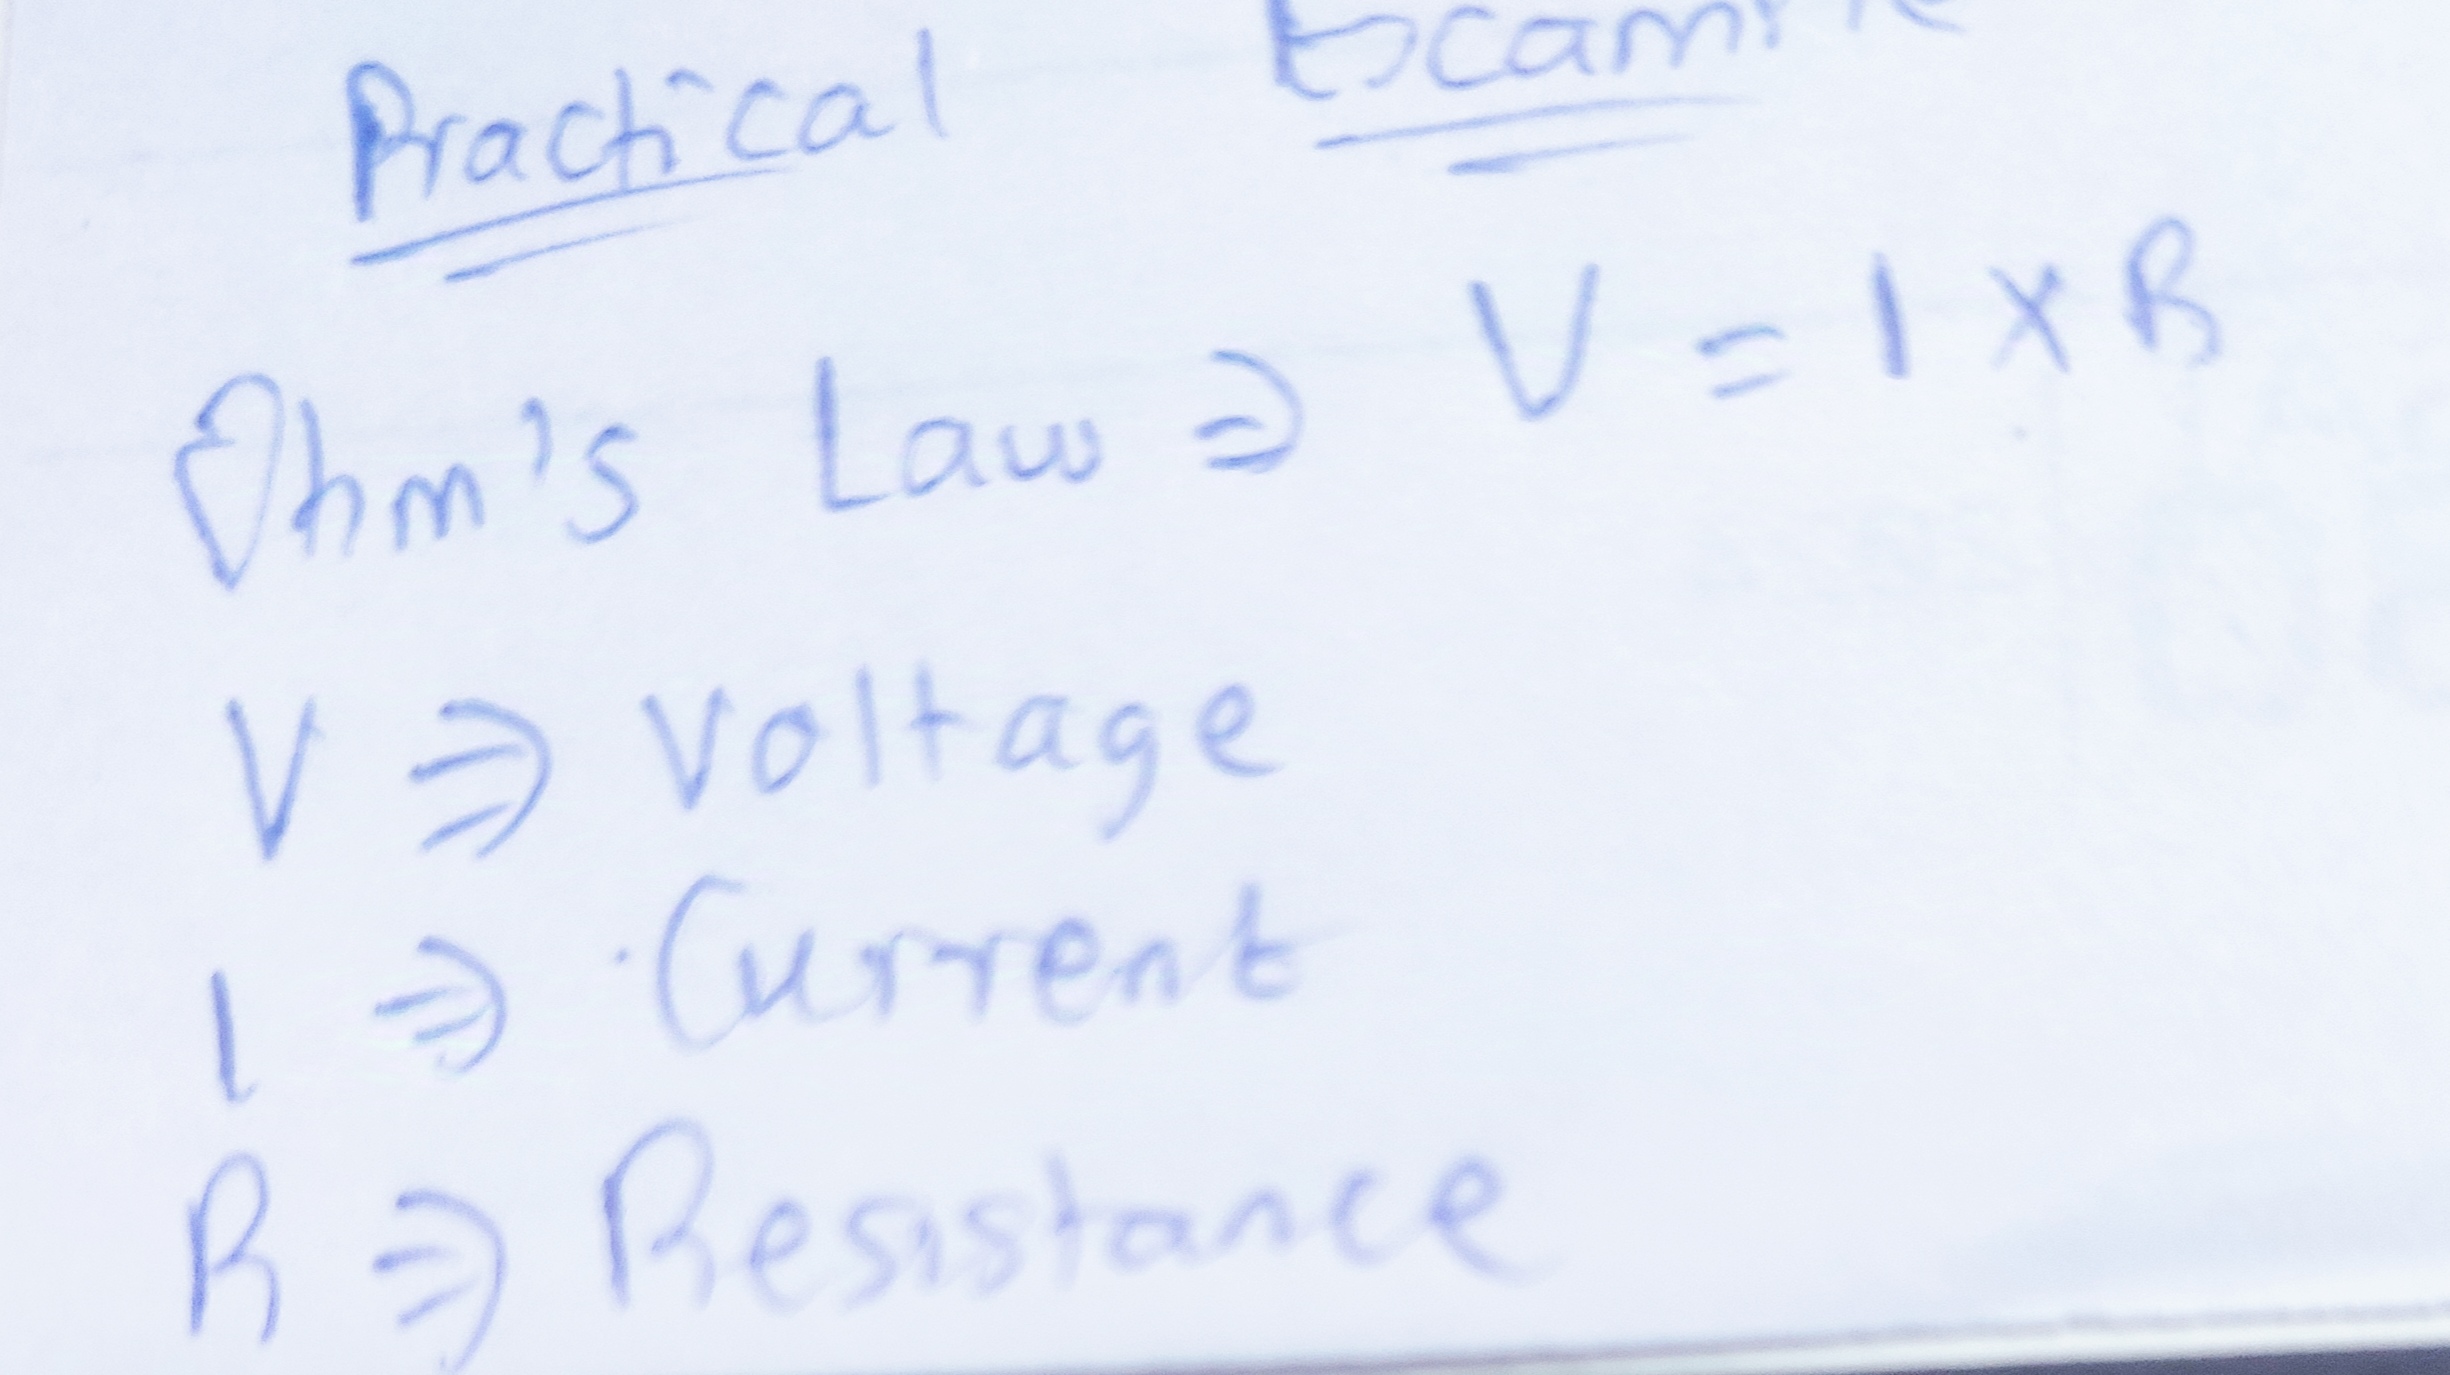 Practical Example
Ohm's Law ⇒ V = I × R
V ⇒ Voltage
I ⇒ Current
R ⇒ Resistance